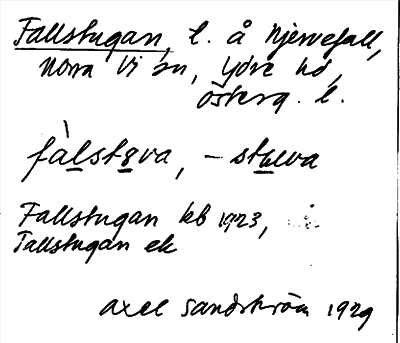 Fallstugan, l. å Njervefall,
Norra Vi sn, Ydre hd,
Österg. l.
fàlstova, – stuva
Fallstugan kb 1923,
Tallstugan ek
Axel Sandström 1929